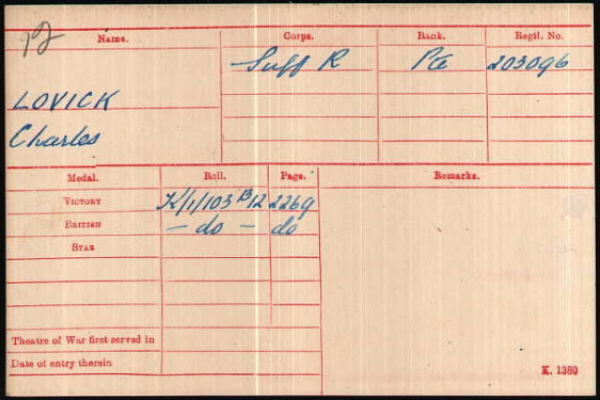 Name. Corps. Rank. Regtl. No.
Suff R Pte 203096
LOVICK
Charles
Medal. Roll. Page. Remarks.
VICTORY K/1/103 B12 2269
BRITISH - do - do
STAR
Theatre of War first served in
Date of entry therein
K. 1380